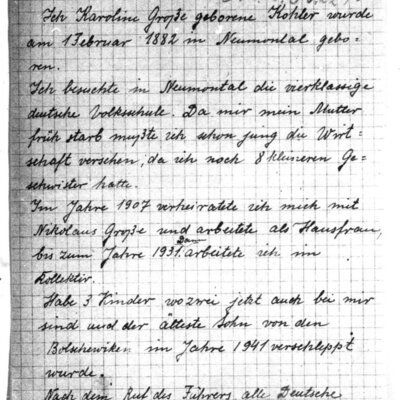 Ich Karoline Große geborene Köhler wurde
am 1 Februar 1882 in Neumontal gebo=
ren.
Ich besuchte in Neumontal die vierklassige
deutsche Volksschule. Da mir mein Mutter
früh starb mußte ich schon jung die Wirt=
schaft versehen, da ich noch 8 kleineren Ge=
schwister hatte.
Im Jahre 1907 verheiratete ich mich mit
Nikolaus Große und arbeitete als Hausfrau,
bis zum Jahre 1931. Dan arbeitete ich im
Kollektiv.
Habe 3 Kinder wo zwei jetzt auch bei mir
sind und der älteste Sohn von den
Bolschewiken im Jahre 1941 verschleppt
wurde.
Nach dem Ruf des Führers alle Deutsche